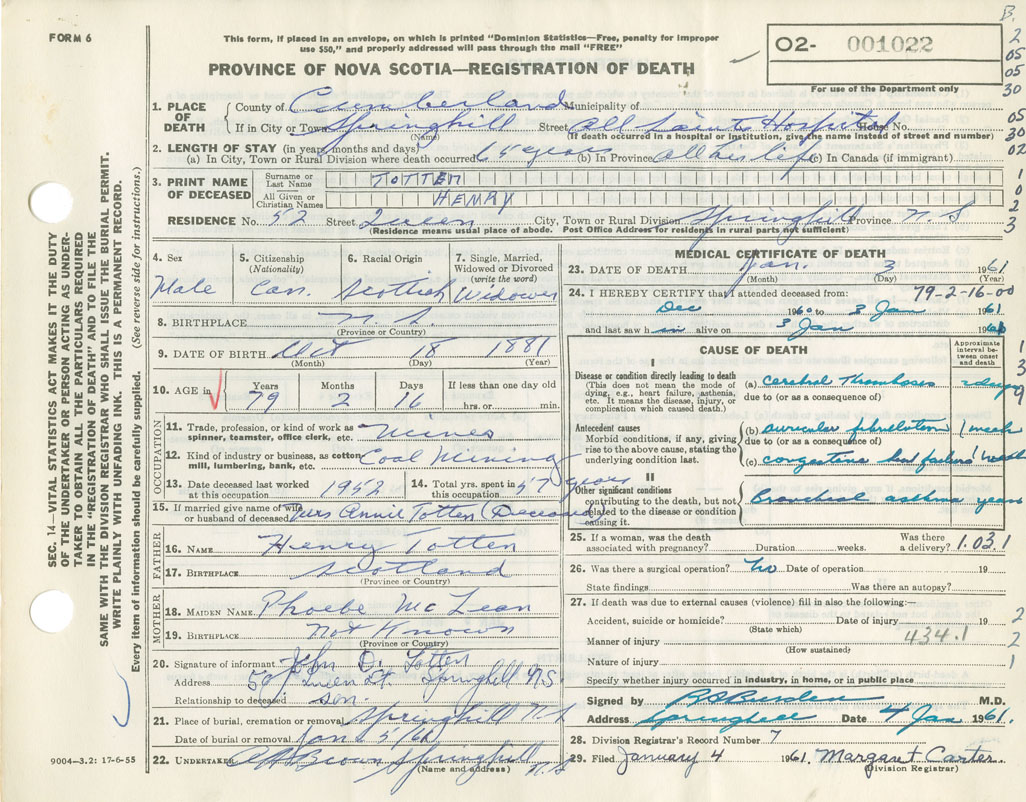 B.
FORM 6
This form, if placed in an envelope, on which is printed "Dominion Statistics—Free, penalty for improper
use $50," and properly addressed will pass through the mail "FREE"
PROVINCE OF NOVA SCOTIA—REGISTRATION OF DEATH
02- 001022
For use of the Department only
2
05
05
30
05
30
02
1
0
2
3
1. PLACE OF DEATH
County of Cumberland Municipality of
If in City or Town Springhill Street All Saints Hospital House No.
(Name) (If death occurred in a hospital or institution, give the name instead of street and number)
2. LENGTH OF STAY (in years, months and days)
(a) In City, Town or Rural Division where death occurred 65 years (b) In Province all his life (c) In Canada (if immigrant)
3. PRINT NAME OF DECEASED
Surname or Last Name TOTTEN
All Given or Christian Names HENRY
RESIDENCE No. 52 Street Queen City, Town or Rural Division Springhill Province N.S
(Residence means usual place of abode. Post Office Address for residents in rural parts not sufficient)
4. Sex
Male
5. Citizenship
(Nationality)
Can.
6. Racial Origin
Scottish
7. Single, Married, Widowed or Divorced
(write the word)
Widower
8. BIRTHPLACE N.S.
(Province or Country)
9. DATE OF BIRTH Oct 18 1881
(Month) (Day) (Year)
10. AGE in
Years Months Days If less than one day old
79 2 16 hrs. or min.
OCCUPATION
11. Trade, profession, or kind of work as
spinner, teamster, office clerk, etc. Mines
12. Kind of industry or business, as cotton
mill, lumbering, bank, etc. Coal Mining
13. Date deceased last worked
at this occupation 1952
14. Total yrs. spent in
this occupation 57 years
15. If married give name of wife
or husband of deceased Mrs Annie Totten (Deceased)
FATHER
16. NAME Henry Totten
17. BIRTHPLACE Scotland
(Province or Country)
MOTHER
18. MAIDEN NAME Phoebe McLean
19. BIRTHPLACE Not Known
(Province or Country)
20. Signature of informant John D. Totten
Address Queen St. Springhill N.S.
Relationship to deceased son.
21. Place of burial, cremation or removal Springhill N.S
Date of burial or removal Jan 5/61
22. UNDERTAKER Brown Springhill N.S
(Name and address)
MEDICAL CERTIFICATE OF DEATH
23. DATE OF DEATH Jan. 3 1961
(Month) (Day) (Year)
24. I HEREBY CERTIFY that I attended deceased from: 79-2-16-00
Dec 1960 to 3 Jan 1961
and last saw him alive on 3 Jan 1961
CAUSE OF DEATH
Approximate interval between onset and death
1
3
9
I
Disease or condition directly leading to death
(This does not mean the mode of
dying, e.g., heart failure, asthenia,
etc. It means the disease, injury, or
complication which caused death.)
(a) cerebral thrombosis 2 days
due to (or as a consequence of)
Antecedent causes
Morbid conditions, if any, giving
rise to the above cause, stating the
underlying condition last.
(b) auricular fibrillation 1 week
due to (or as a consequence of)
(c) congestive heart failure 1 week
II
Other significant conditions
contributing to the death, but not
related to the disease or condition
causing it.
Bronchial asthma years
25. If a woman, was the death
associated with pregnancy? Duration weeks. Was there
a delivery? 1.031
26. Was there a surgical operation? no Date of operation 19
State findings Was there an autopsy?
27. If death was due to external causes (violence) fill in also the following:—
Accident, suicide or homicide? Date of injury 19
(State which)
Manner of injury 434.1
(How sustained)
Nature of injury
2
2
1
Specify whether injury occurred in industry, in home, or in public place
Signed by Burden M.D.
Address Springhill Date 4 Jan 1961.
28. Division Registrar's Record Number 7
29. Filed January 4 1961. Margaret Carter
(Division Registrar)
SEC. 14—VITAL STATISTICS ACT MAKES IT THE DUTY
OF THE UNDERTAKER OR PERSON ACTING AS UNDER-
TAKER TO OBTAIN ALL THE PARTICULARS REQUIRED
IN THE "REGISTRATION OF DEATH" AND TO FILE THE
SAME WITH THE DIVISION REGISTRAR WHO SHALL ISSUE THE BURIAL PERMIT.
WRITE PLAINLY WITH UNFADING INK. THIS IS A PERMANENT RECORD.
Every item of information should be carefully supplied. (See reverse side for instructions.)
9004—3.2: 17-6-55